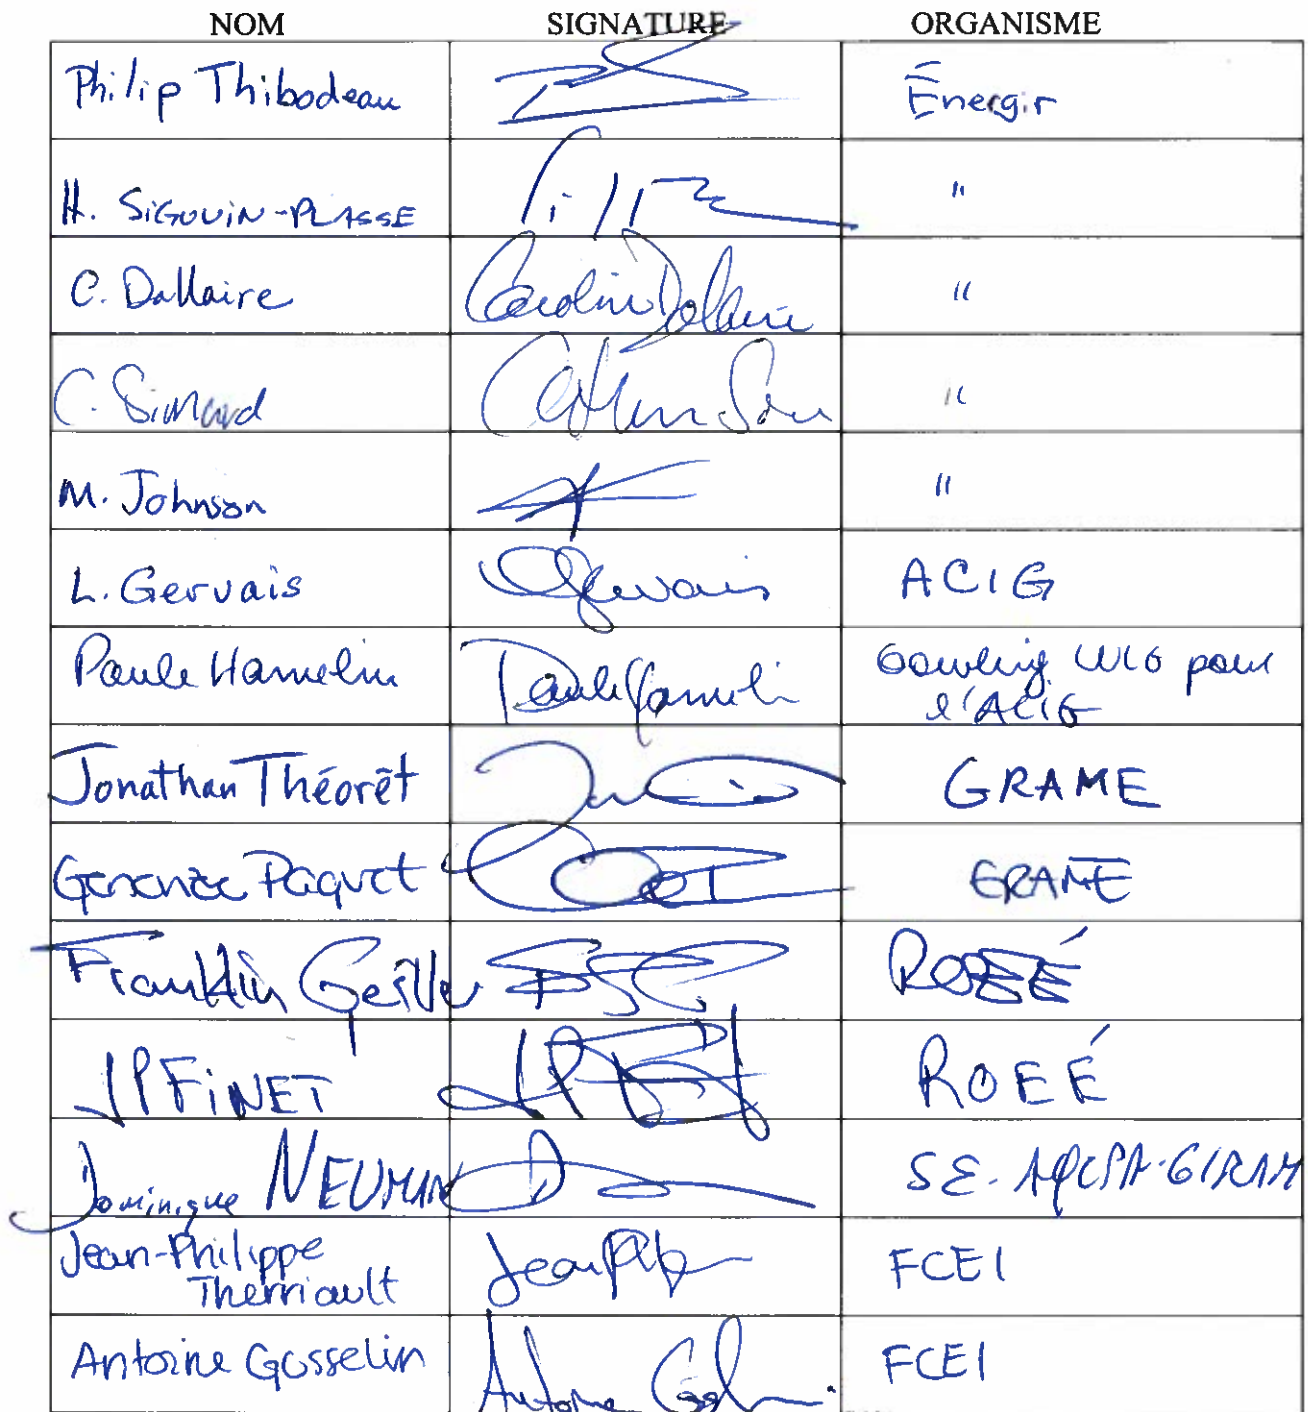 NOM SIGNATURE ORGANISME
Philip Thibodeau Énergir
H. SIGOUIN-PLASSE "
C. Dallaire Caroline Dallaire "
C. Simard "
M. Johnson "
L. Gervais Gervais ACIG
Paule Hamelin Paule Hamelin Gowling WLG pour
l'ACIG
Jonathan Théorêt GRAME
Geneviève Paquet GRAME
Franklin ROEÉ
JP FINET ROEÉ
Dominique NEUMAN S.É.-AQLPA-GIRAM
Jean-Philippe
Therriault FCEI
Antoine Gosselin Antoine FCEI